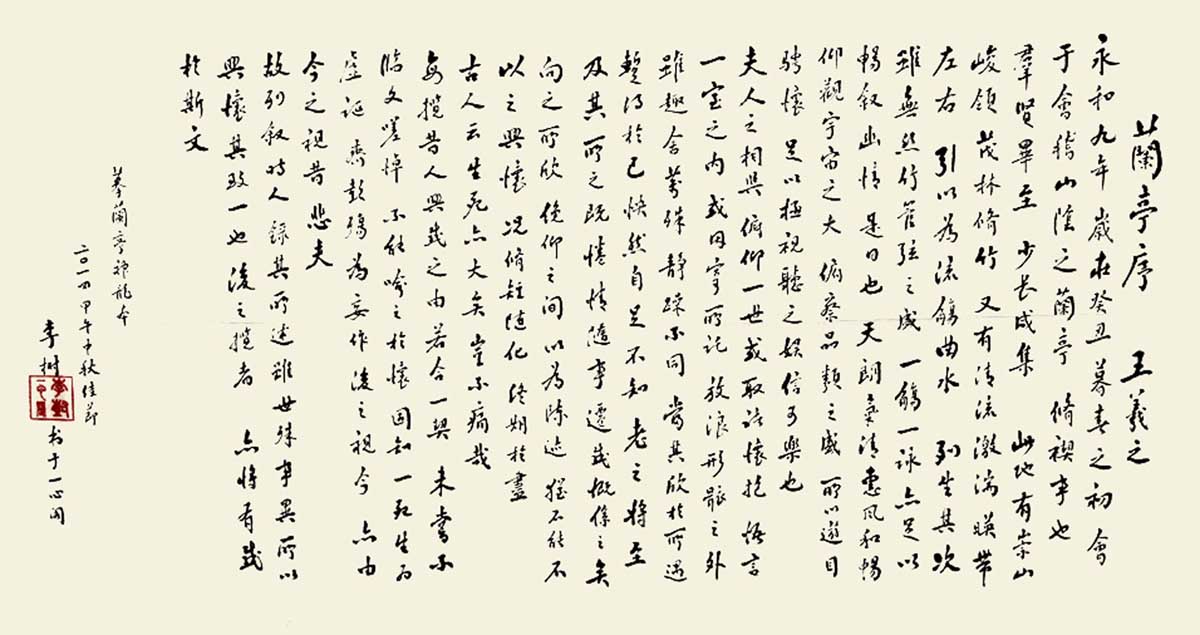 蘭亭序 王羲之
永和九年歲在癸丑暮春之初會
于會稽山陰之蘭亭 脩禊事也
羣賢畢至 少長咸集 此地有崇山
峻領茂林脩竹 又有清流激湍暎帶
左右 引以為流觴曲水 列坐其次
雖無絲竹管弦之盛 一觴一詠亦足以
暢叙幽情 是日也 天朗氣清惠風和暢
仰觀宇宙之大 俯察品類之盛 所以遊目
騁懷 足以極視聽之娛信可樂也
夫人之相與俯仰一世或取諸懷抱 悟言
一室之内 或因寄所託 放浪形骸之外
雖趣舍萬殊 靜躁不同 當其欣於所遇
暫得於己 怏然自足 不知老之將至
及其所之既惓 情隨事遷 感慨係之矣
向之所欣 俛仰之間 以為陳迹 猶不能不
以之興懷 况脩短隨化 終期於盡
古人云生死亦大矣 豈不痛哉
每攬昔人興感之由 若合一契 未嘗不
臨文嗟悼 不能喻之於懷 固知一死生為
虛誕 齊彭殤為妄作 後之視今 亦由
今之視昔 悲夫
故列叙時人 録其所述 雖世殊事異 所以
興懷其致一也 後之攬者 亦將有感
於斯文
摹蘭亭神龍本
二〇一四甲午中秋佳節
李樹 书于一心阁